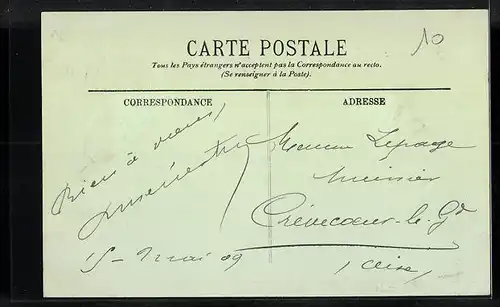 10
CARTE POSTALE
Tous les Pays étrangers n'acceptent pas la Correspondance au recto.
(Se renseigner à la Poste).
CORRESPONDANCE
ADRESSE
Bien à vous
15 - mai 09
Lepage
Crèvecœur-le-Gd
(Oise)